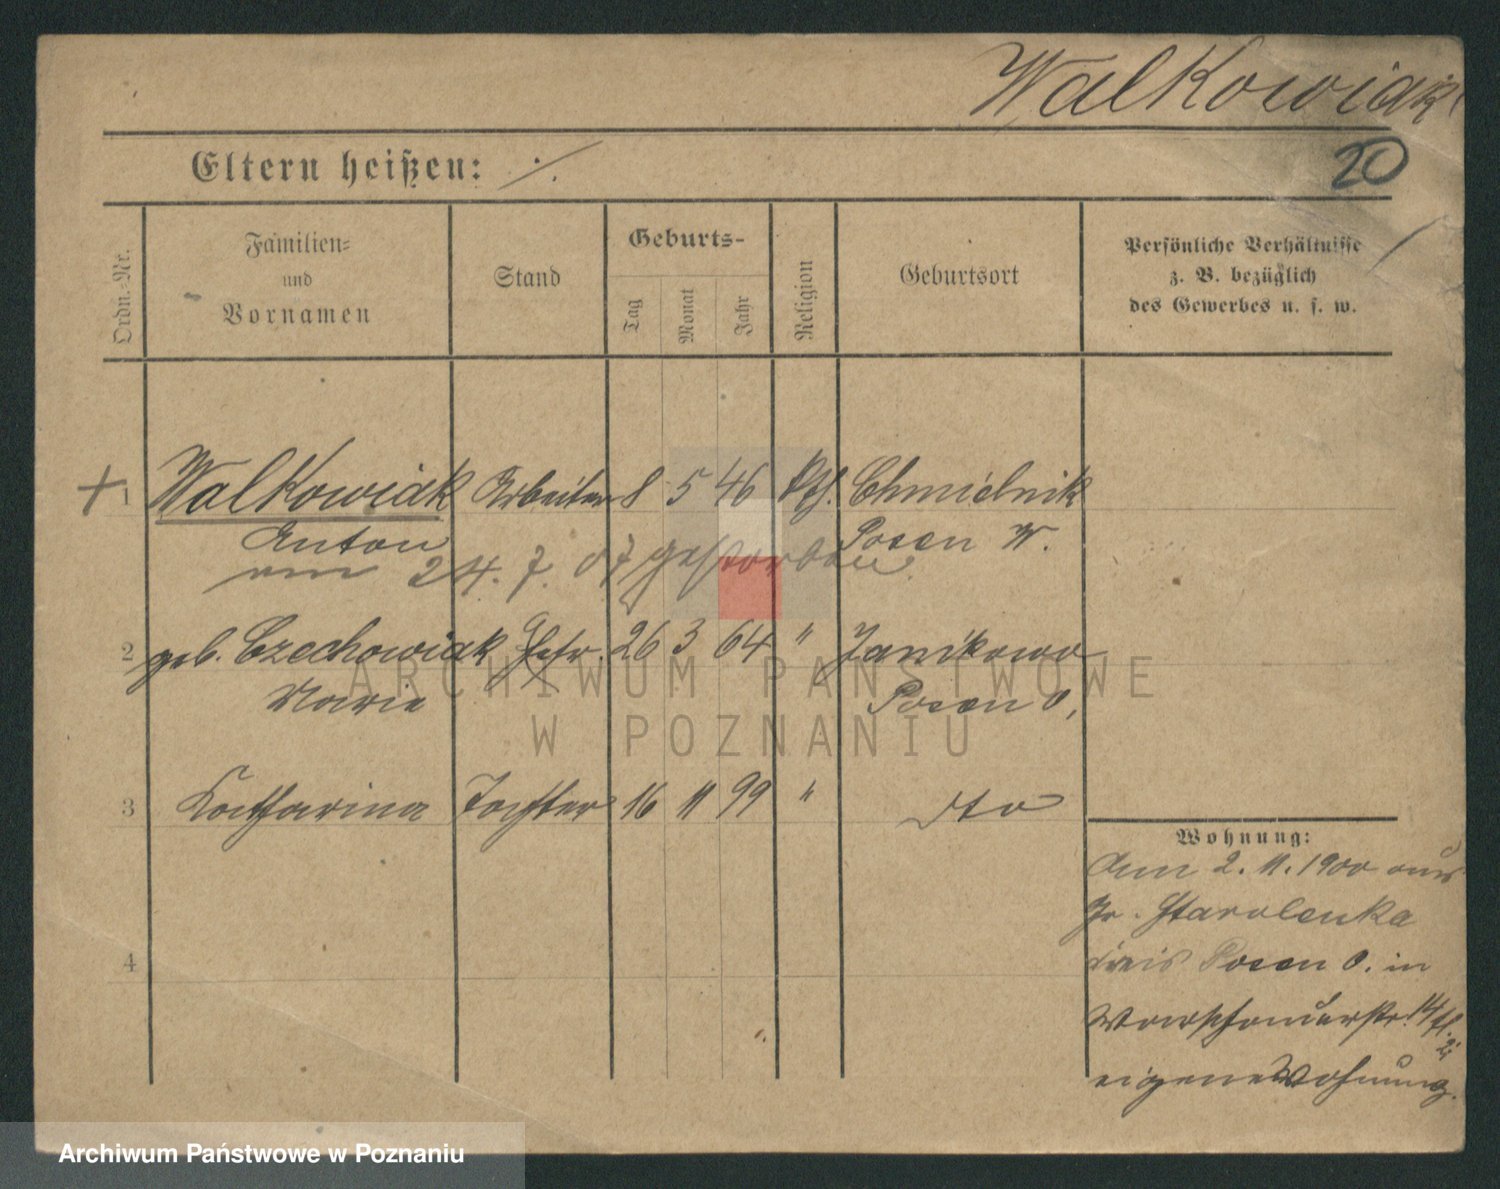 Walkowiak
20
Eltern heißen: ·/.
Ordn.-Nr.
Familien-
und
Vornamen
Stand
Geburts-
Tag
Monat
Jahr
Religion
Geburtsort
Persönliche Verhältnisse
z. B. bezüglich
des Gewerbes u. s. w.
+ 1 Walkowiak Arbeiter 8 5 46 kth. Chmielnik
Anton Posen W.
am 24. 7. 07 gestorben
2 geb. Czechowiak Ehefr. 26 3 64 " Janikowo
Marie Posen O.
3 Katharina Tochter 16 11 99 " dto
4
Wohnung:
Am 2. 11. 1900 aus
Gr. Starolenka
Kreis Posen O. in
Warschauerstr. 14
eigene Wohnung.
ARCHIWUM PAŃSTWOWE
W POZNANIU
Archiwum Państwowe w Poznaniu